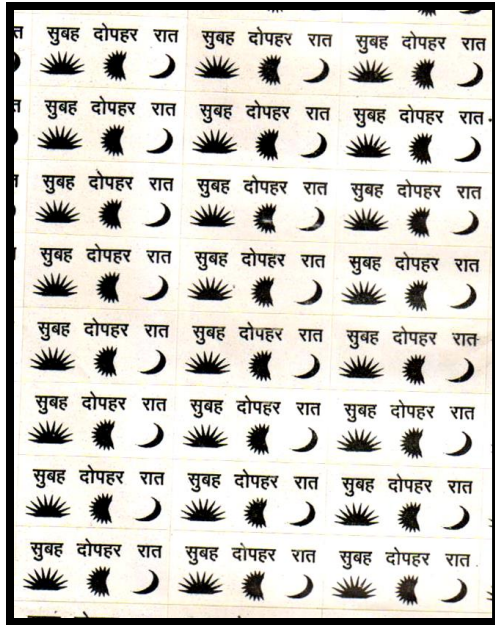 सुबह दोपहर रात सुबह दोपहर रात सुबह दोपहर रात
सुबह दोपहर रात सुबह दोपहर रात सुबह दोपहर रात
सुबह दोपहर रात सुबह दोपहर रात सुबह दोपहर रात
सुबह दोपहर रात सुबह दोपहर रात सुबह दोपहर रात
सुबह दोपहर रात सुबह दोपहर रात सुबह दोपहर रात
सुबह दोपहर रात सुबह दोपहर रात सुबह दोपहर रात
सुबह दोपहर रात सुबह दोपहर रात सुबह दोपहर रात
सुबह दोपहर रात सुबह दोपहर रात सुबह दोपहर रात